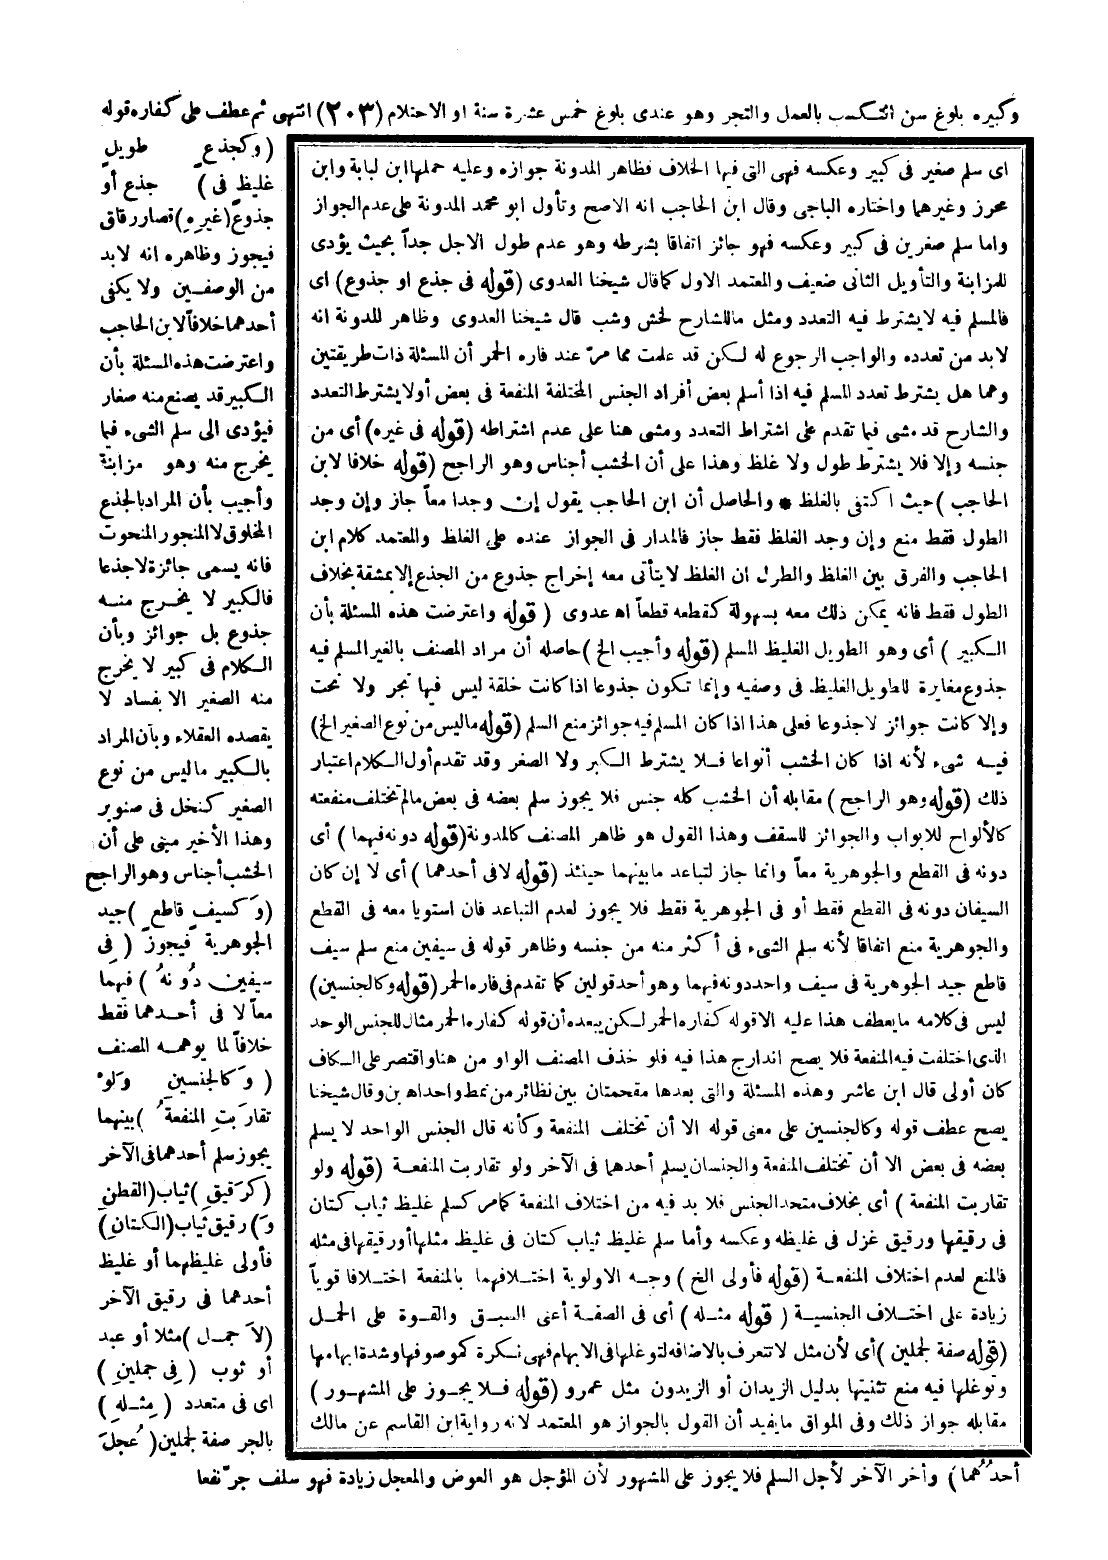 وكبيره بلوغ سن التكسب بالعمل والتجر وهو عندى بلوغ خمس عشرة سنة او الاحتلام (٢٠٣) انتهى ثم عطف على كفاره قوله
(وكجذع طويل
غليظ فى) جذع أو
جذوع (غيره) قصار رقاق
فيجوز وظاهره انه لابد
من الوصفين ولا يكفى
أحدهما خلافاً لابن الحاجب
واعترضت هذه المسئلة بأن
الكبير قد يصنع منه صغار
فيؤدى الى سلم الشىء فيما
يخرج منه وهو مزابنة
وأجيب بأن المراد بالجذع
المخلوق لا المنجور المنحوت
فانه يسمى جائزة لا جذعا
فالكبير لا يخرج منه
جذوع بل جوائز وبأن
الكلام فى كبير لا يخرج
منه الصغير الا بفساد لا
يقصده العقلاء وبأن المراد
بالكبير ماليس من نوع
الصغير كنخل فى صنوبر
وهذا الأخير مبنى على أن
الخشب أجناس وهو الراجح
(وَكسيفٍ قاطع) جيد
الجوهرية فيجوز (فِى
سيفين دُونهُ) فيهما
معاً لا فى أحدهما فقط
خلافاً لما يوهمه المصنف
(وَكالجنسين وَلوْ
تقارَبتِ المنفعةُ) بينهما
يجوز سلم أحدهما فى الآخر
(كرَقيقِ) ثياب (القطنِ
وَ) رقيق ثياب (الكتان)
فأولى غليظهما أو غليظ
أحدهما فى رقيق الآخر
(لاَ جمل) مثلا أو عبد
أو ثوب (فِى جملينِ)
اى فى متعدد (مِثلهِ)
بالجر صفة لجملين (عُجلَ
اى سلم صغير فى كبير وعكسه فهى التى فيها الخلاف فظاهر المدونة جوازه وعليه حملها ابن لبابة وابن
محرز وغيرهما واختاره الباجى وقال ابن الحاجب انه الاصح وتأول ابو محمد المدونة على عدم الجواز
واما سلم صغرين فى كبير وعكسه فهو جائز اتفاقا بشرطه وهو عدم طول الاجل جداً بحيث يؤدى
للمزابنة والتأويل الثانى ضعيف والمعتمد الاول كما قال شيخنا العدوى (قوله فى جذع او جذوع) اى
فالمسلم فيه لا يشترط فيه التعدد ومثل ما للشارح لخش وشب قال شيخنا العدوى وظاهر المدونة انه
لابد من تعدده والواجب الرجوع له لكن قد علمت مما مرّ عند فاره الحمر أن المسئلة ذات طريقتين
وهما هل يشترط تعدد المسلم فيه اذا أسلم بعض أفراد الجنس المختلفة المنفعة فى بعض أولا يشترط التعدد
والشارح قد مشى فيما تقدم على اشتراط التعدد ومشى هنا على عدم اشتراطه (قوله فى غيره) أى من
جنسه وإلا فلا يشترط طول ولا غلظ وهذا على أن الخشب أجناس وهو الراجح (قوله خلافا لابن
الحاجب) حيث اكتفى بالغلظ * والحاصل أن ابن الحاجب يقول إن وجدا معاً جاز وإن وجد
الطول فقط منع وإن وجد الغلظ فقط جاز فالمدار فى الجواز عنده على الغلظ والمعتمد كلام ابن
الحاجب والفرق بين الغلظ والطول ان الغلظ لا يتأتى معه إخراج جذوع من الجذع إلا بمشقة بخلاف
الطول فقط فانه يمكن ذلك معه بسهولة كقطعه قطعاً اه عدوى (قوله واعترضت هذه المسئلة بأن
الكبير) أى وهو الطويل الغليظ المسلم (قوله وأجيب الخ) حاصله أن مراد المصنف بالغير المسلم فيه
جذوع مغايرة للطويل الغليظ فى وصفيه وإنما تكون جذوعا اذا كانت خلقة ليس فيها نجر ولا نحت
وإلا كانت جوائز لا جذوعا فعلى هذا اذا كان المسلم فيه جوائز منع السلم (قوله ماليس من نوع الصغير الخ)
فيه شىء لأنه اذا كان الخشب أنواعا فلا يشترط الكبر ولا الصغر وقد تقدم أول الكلام اعتبار
ذلك (قوله وهو الراجح) مقابله أن الخشب كله جنس فلا يجوز سلم بعضه فى بعض مالم تختلف منفعته
كالألواح للابواب والجوائز للسقف وهذا القول هو ظاهر المصنف كالمدونة (قوله دونه فيهما) أى
دونه فى القطع والجوهرية معاً وانما جاز لتباعد ما بينهما حينئذ (قوله لا فى أحدهما) أى لا إن كان
السيفان دونه فى القطع فقط أو فى الجوهرية فقط فلا يجوز لعدم التباعد فان استويا معه فى القطع
والجوهرية منع اتفاقا لأنه سلم الشىء فى أكثر منه من جنسه وظاهر قوله فى سيفين منع سلم سيف
قاطع جيد الجوهرية فى سيف واحد دونه فيهما وهو أحد قولين كما تقدم فى فاره الحمر (قوله وكالجنسين)
ليس فى كلامه ما يعطف هذا عليه الا قوله كفاره الحمر لكن يبعده أن قوله كفاره الحمر مثال للجنس الواحد
الذى اختلفت فيه المنفعة فلا يصح اندارج هذا فيه فلو حذف المصنف الواو من هنا واقتصر على الكاف
كان أولى قال ابن عاشر وهذه المسئلة والتى بعدها مقحمتان بين نظائر من نمط واحد اه بن وقال شيخنا
يصح عطف قوله وكالجنسين على معنى قوله الا أن تختلف المنفعة وكأنه قال الجنس الواحد لا يسلم
بعضه فى بعض الا أن تختلف المنفعة والجنسان يسلم أحدهما فى الآخر ولو تقاربت المنفعة (قوله ولو
تقاربت المنفعة) أى بخلاف متحد الجنس فلا بد فيه من اختلاف المنفعة كما مر كسلم غليظ ثياب كتان
فى رقيقها ورقيق غزل فى غليظه وعكسه وأما سلم غليظ ثياب كتان فى غليظ مثلها أو رقيقها فى مثله
فالمنع لعدم اختلاف المنفعة (قوله فأولى الخ) وجه الاولوية اختلافهما بالمنفعة اختلافا قوياً
زيادة على اختلاف الجنسية (قوله مثله) أى فى الصفة أعنى السبق والقوة على الحمل
(قوله صفة لجملين) أى لأن مثل لا تتعرف بالاضافه لتوغلها فى الابهام فهى نكرة كموصوفها وشدة ابهامها
وتوغلها فيه منع تثنيتها بدليل الزيدان أو الزيدون مثل عمرو (قوله فلا يجوز على المشهور)
مقابله جواز ذلك وفى المواق ما يفيد أن القول بالجواز هو المعتمد لانه رواية ابن القاسم عن مالك
أحدُهُما) وأخر الآخر لأجل السلم فلا يجوز على المشهور لأن المؤجل هو العوض والمعجل زيادة فهو سلف جرّ نفعا